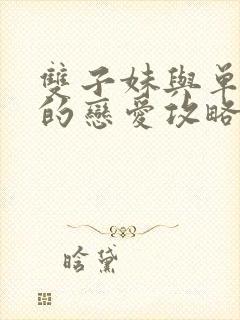 雙子妹與單
的戀愛攻略
晗黛